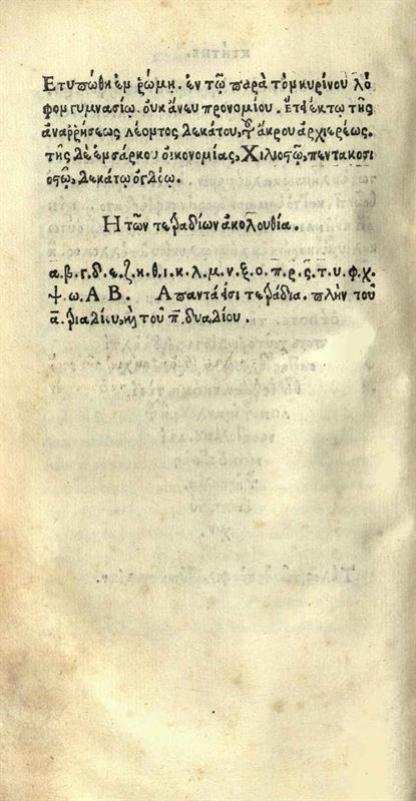 Ετυπώθη ἐμ ῥώμῃ. ἐν τῷ παρὰ τὸμ κυρίνου λό
φομ γυμνασίῳ. οὐκ ἄνευ προνομίου. ἔτει ἕκτῳ τῆς
ἀναῤῥήσεως λέοντος δεκάτου, τοῦ ἄκρου ἀρχιερέως.
τῆς δὲ ἐμσάρκου οἰκονομίας, Χιλιοςῷ, πεντακοσι
οςῷ, δεκάτῳ ὀγδόῳ.
Η τῶν τετραδίων ἀκολουθία.
α.β.γ.δ.ε.ζ.η.θ.ι.κ.λ.μ.ν.ξ.ο.π.ρ.ς.τ.υ.φ.χ.
ψ.ω. Α Β. Απαντά εἰσι τετράδια. πλὴν τοῦ